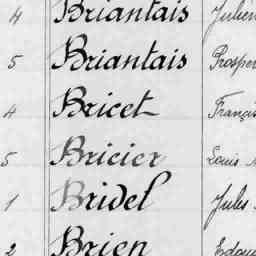 4 Briantais Julien
5 Briantais Prosper
4 Bricet François
5 Bricier Louis
1 Bridel Jules
2 Brien Edou